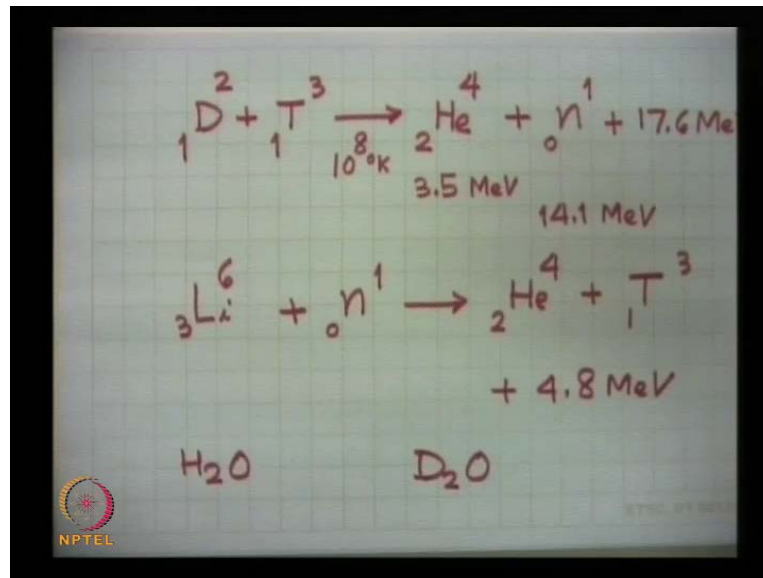 ₁D² + ₁T³ ⟶ ₂He⁴ + ₀n¹ + 17.6 Me
10⁸ °K
3.5 MeV
14.1 MeV
₃Li⁶ + ₀n¹ ⟶ ₂He⁴ + ₁T³
+ 4.8 MeV
H₂O D₂O
NPTEL